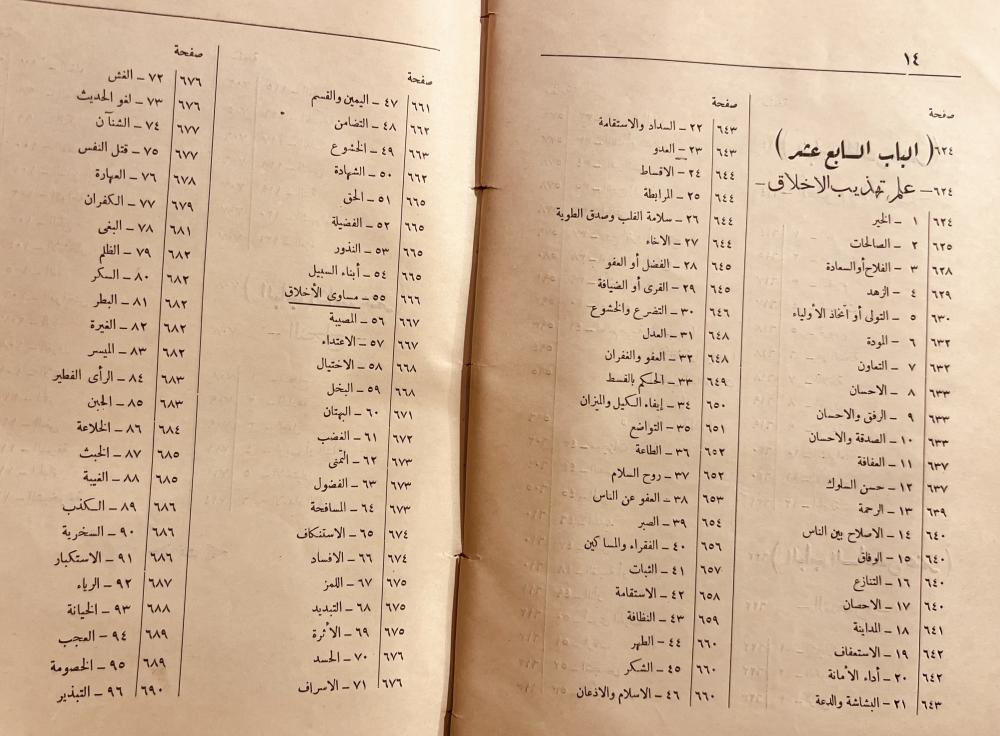 ١٤
صفحة
٦٢٤ (الباب السابع عشر)
٦٢٤ — علم تهذيب الاخلاق —
٦٢٤ ١ — الخير
٦٢٥ ٢ — الصالحات
٦٢٨ ٣ — الفلاح أو السعادة
٦٢٩ ٤ — الزهد
٦٣٠ ٥ — التولى أو اتخاذ الأولياء
٦٣٢ ٦ — المودة
٦٣٢ ٧ — التعاون
٦٣٣ ٨ — الاحسان
٦٣٣ ٩ — الرفق والاحسان
٦٣٣ ١٠ — الصدقة والاحسان
٦٣٧ ١١ — العفافة
٦٣٧ ١٢ — حسن السلوك
٦٣٩ ١٣ — الرحمة
٦٤٠ ١٤ — الاصلاح بين الناس
٦٤٠ ١٥ — الوفاق
٦٤٠ ١٦ — التنازع
٦٤٠ ١٧ — الاحسان
٦٤١ ١٨ — المداينة
٦٤٢ ١٩ — الاستعفاف
٦٤٢ ٢٠ — أداء الأمانة
٦٤٣ ٢١ — البشاشة والدعة
صفحة
٦٤٣ ٢٢ — السداد والاستقامة
٦٤٣ ٢٣ — العدو
٦٤٤ ٢٤ — الاقساط
٦٤٤ ٢٥ — المرابطة
٦٤٤ ٢٦ — سلامة القلب وصدق الطوية
٦٤٤ ٢٧ — الاخاء
٦٤٥ ٢٨ — الفضل أو العفو
٦٤٥ ٢٩ — القرى أو الضيافة
٦٤٦ ٣٠ — التضرع والخشوع
٦٤٨ ٣١ — العدل
٦٤٨ ٣٢ — العفو والغفران
٦٤٩ ٣٣ — الحكم بالقسط
٦٥٠ ٣٤ — إيفاء الكيل والميزان
٦٥١ ٣٥ — التواضع
٦٥٢ ٣٦ — الطاعة
٦٥٢ ٣٧ — روح السلام
٦٥٣ ٣٨ — العفو عن الناس
٦٥٤ ٣٩ — الصبر
٦٥٦ ٤٠ — الفقراء والمساكين
٦٥٧ ٤١ — الثبات
٦٥٨ ٤٢ — الاستقامة
٦٥٩ ٤٣ — النظافة
٦٦٠ ٤٤ — الطهر
٦٦٠ ٤٥ — الشكر
٦٦٠ ٤٦ — الاسلام والاذعان
صفحة
٦٦١ ٤٧ — اليمين والقسم
٦٦٢ ٤٨ — التضامن
٦٦٣ ٤٩ — الخشوع
٦٦٢ ٥٠ — الشهادة
٦٦٥ ٥١ — الحق
٦٦٥ ٥٢ — الفضيلة
٦٦٥ ٥٣ — النذور
٦٦٥ ٥٤ — أبناء السبيل
٦٦٦ ٥٥ — مساوى الأخلاق
٦٦٧ ٥٦ — المصيبة
٦٦٧ ٥٧ — الاعتداء
٦٦٨ ٥٨ — الاختيال
٦٦٨ ٥٩ — البخل
٦٧١ ٦٠ — البهتان
٦٧٢ ٦١ — الغضب
٦٧٣ ٦٢ — التمنى
٦٧٣ ٦٣ — الفضول
٦٧٣ ٦٤ — المسافحة
٦٧٤ ٦٥ — الاستنكاف
٦٧٤ ٦٦ — الافساد
٦٧٥ ٦٧ — اللمز
٦٧٥ ٦٨ — التبديد
٦٧٥ ٦٩ — الأثرة
٦٧٦ ٧٠ — الحسد
٦٧٦ ٧١ — الاسراف
صفحة
٦٧٦ ٧٢ — الغش
٦٧٦ ٧٣ — لغو الحديث
٦٧٧ ٧٤ — الشنآن
٦٧٧ ٧٥ — قتل النفس
٦٧٨ ٧٦ — العهارة
٦٧٩ ٧٧ — الكفران
٦٨١ ٧٨ — البغى
٦٨٢ ٧٩ — الظلم
٦٨٢ ٨٠ — السكر
٦٨٢ ٨١ — البطر
٦٨٢ ٨٢ — الغيرة
٦٨٢ ٨٣ — الميسر
٦٨٣ ٨٤ — الرأى الفطير
٦٨٣ ٨٥ — الجبن
٦٨٤ ٨٦ — الخلاعة
٦٨٥ ٨٧ — الخبث
٦٨٥ ٨٨ — الغيبة
٦٨٦ ٨٩ — الكذب
٦٨٦ ٩٠ — السخرية
٦٨٦ ٩١ — الاستكبار
٦٨٧ ٩٢ — الرياء
٦٨٨ ٩٣ — الخيانة
٦٨٩ ٩٤ — العجب
٦٨٩ ٩٥ — الخصومة
٦٩٠ ٩٦ — التبذير